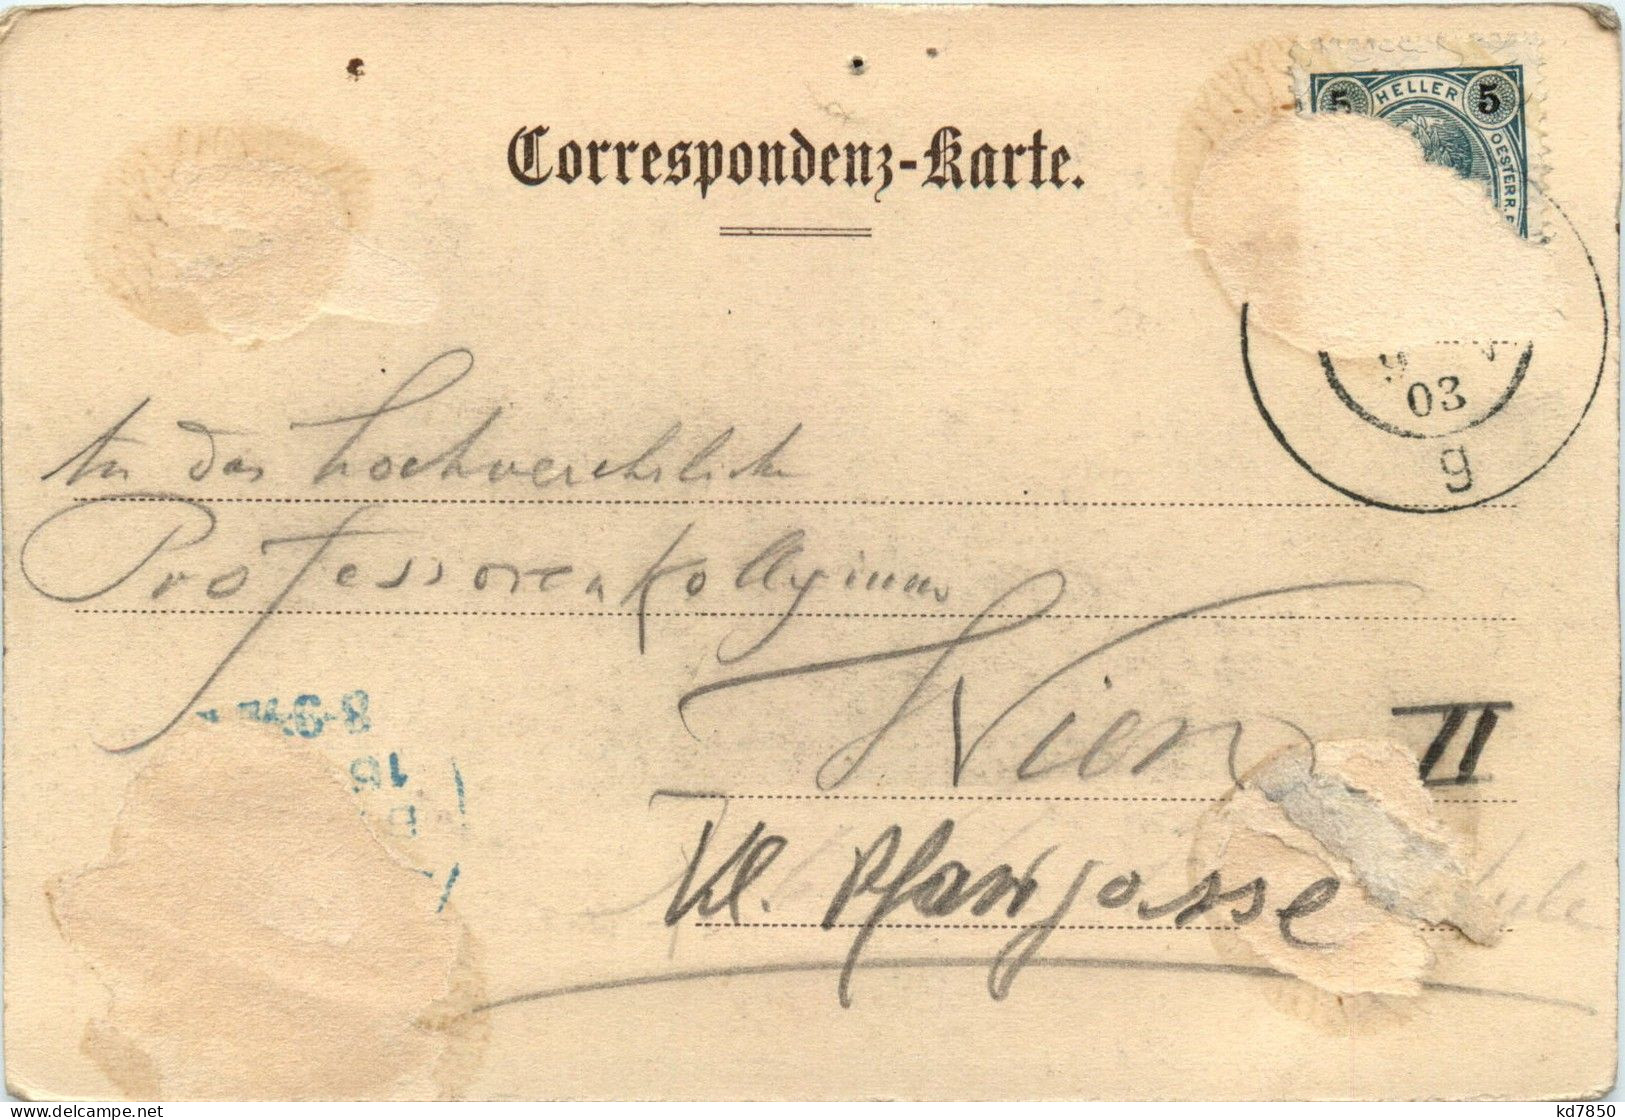 Correspondenz-Karte.
5 HELLER 5
OESTERR.
9 V
03
g
An das hochverehrliche
Professorenkollegium
Wien II
Kl. Pfarrgasse
8-9
kd7850